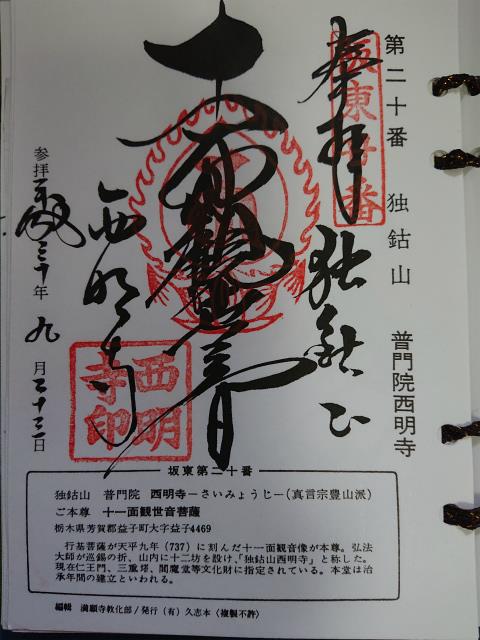 第二十番 独鈷山 普門院西明寺
坂東廿番
奉拝
独鈷山
十一面観世音
西明寺
参拝 平成三十年 九月二十三日
西明
寺印
坂東第二十番
独鈷山 普門院 西明寺−さいみょうじ−(真言宗豊山派)
ご本尊 十一面観世音菩薩
栃木県芳賀郡益子町大字益子4469
行基菩薩が天平九年(737)に刻んだ十一面観音像が本尊。弘法
大師が巡錫の折、山内に十二坊を設け、「独鈷山西明寺」と称した。
現在仁王門、三重塔、閻魔堂等文化財に指定されている。本堂は治
承年間の建立といわれる。
編輯 満願寺教化部/発行(有)久志本〈複製不許〉